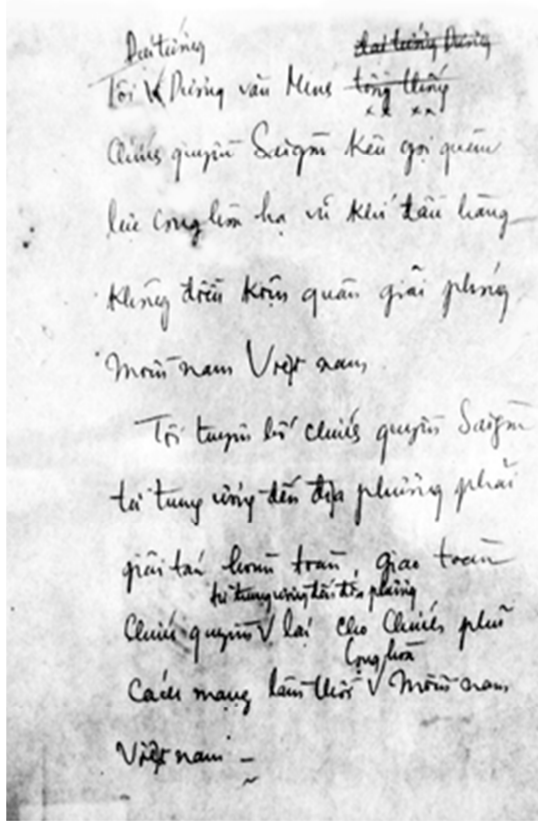 Đại tướng đại tướng Dương
Tôi Dương văn Minh tổng thống
Chính quyền Saigon kêu gọi quân
lực cộng hòa hạ vũ khí đầu hàng
không điều kiện quân giải phóng
miền nam Việt nam
Tôi tuyên bố chính quyền Saigon
từ trung ương đến địa phương phải
giải tán hoàn toàn, giao toàn
từ trung ương đến địa phương
chính quyền V lại cho Chính phủ
Cộng hòa
Cách mạng lâm thời V Miền nam
Việt nam –